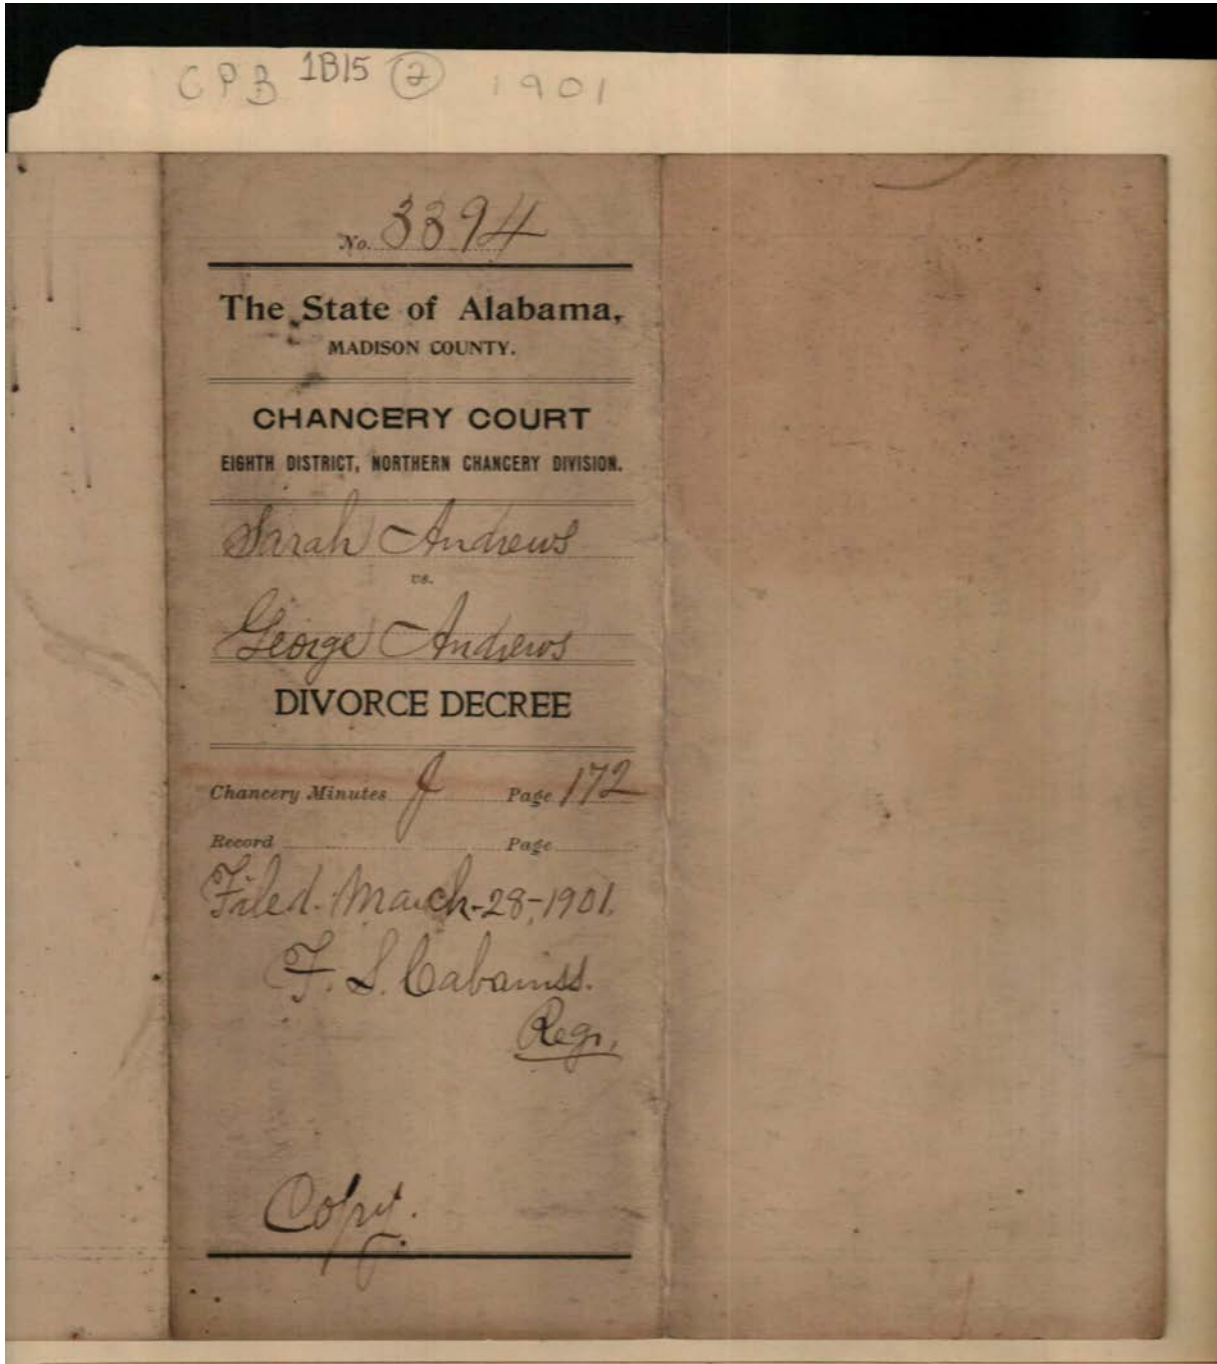 CPB 1B15 2 1901
No. 3394
The State of Alabama,
MADISON COUNTY.
CHANCERY COURT
EIGHTH DISTRICT, NORTHERN CHANCERY DIVISION.
Sarah Andrews
vs.
George Andrews
DIVORCE DECREE
Chancery Minutes J Page 172
Record Page
Filed. March-28-1901.
F. S. Cabaniss.
Regr.
Copy.